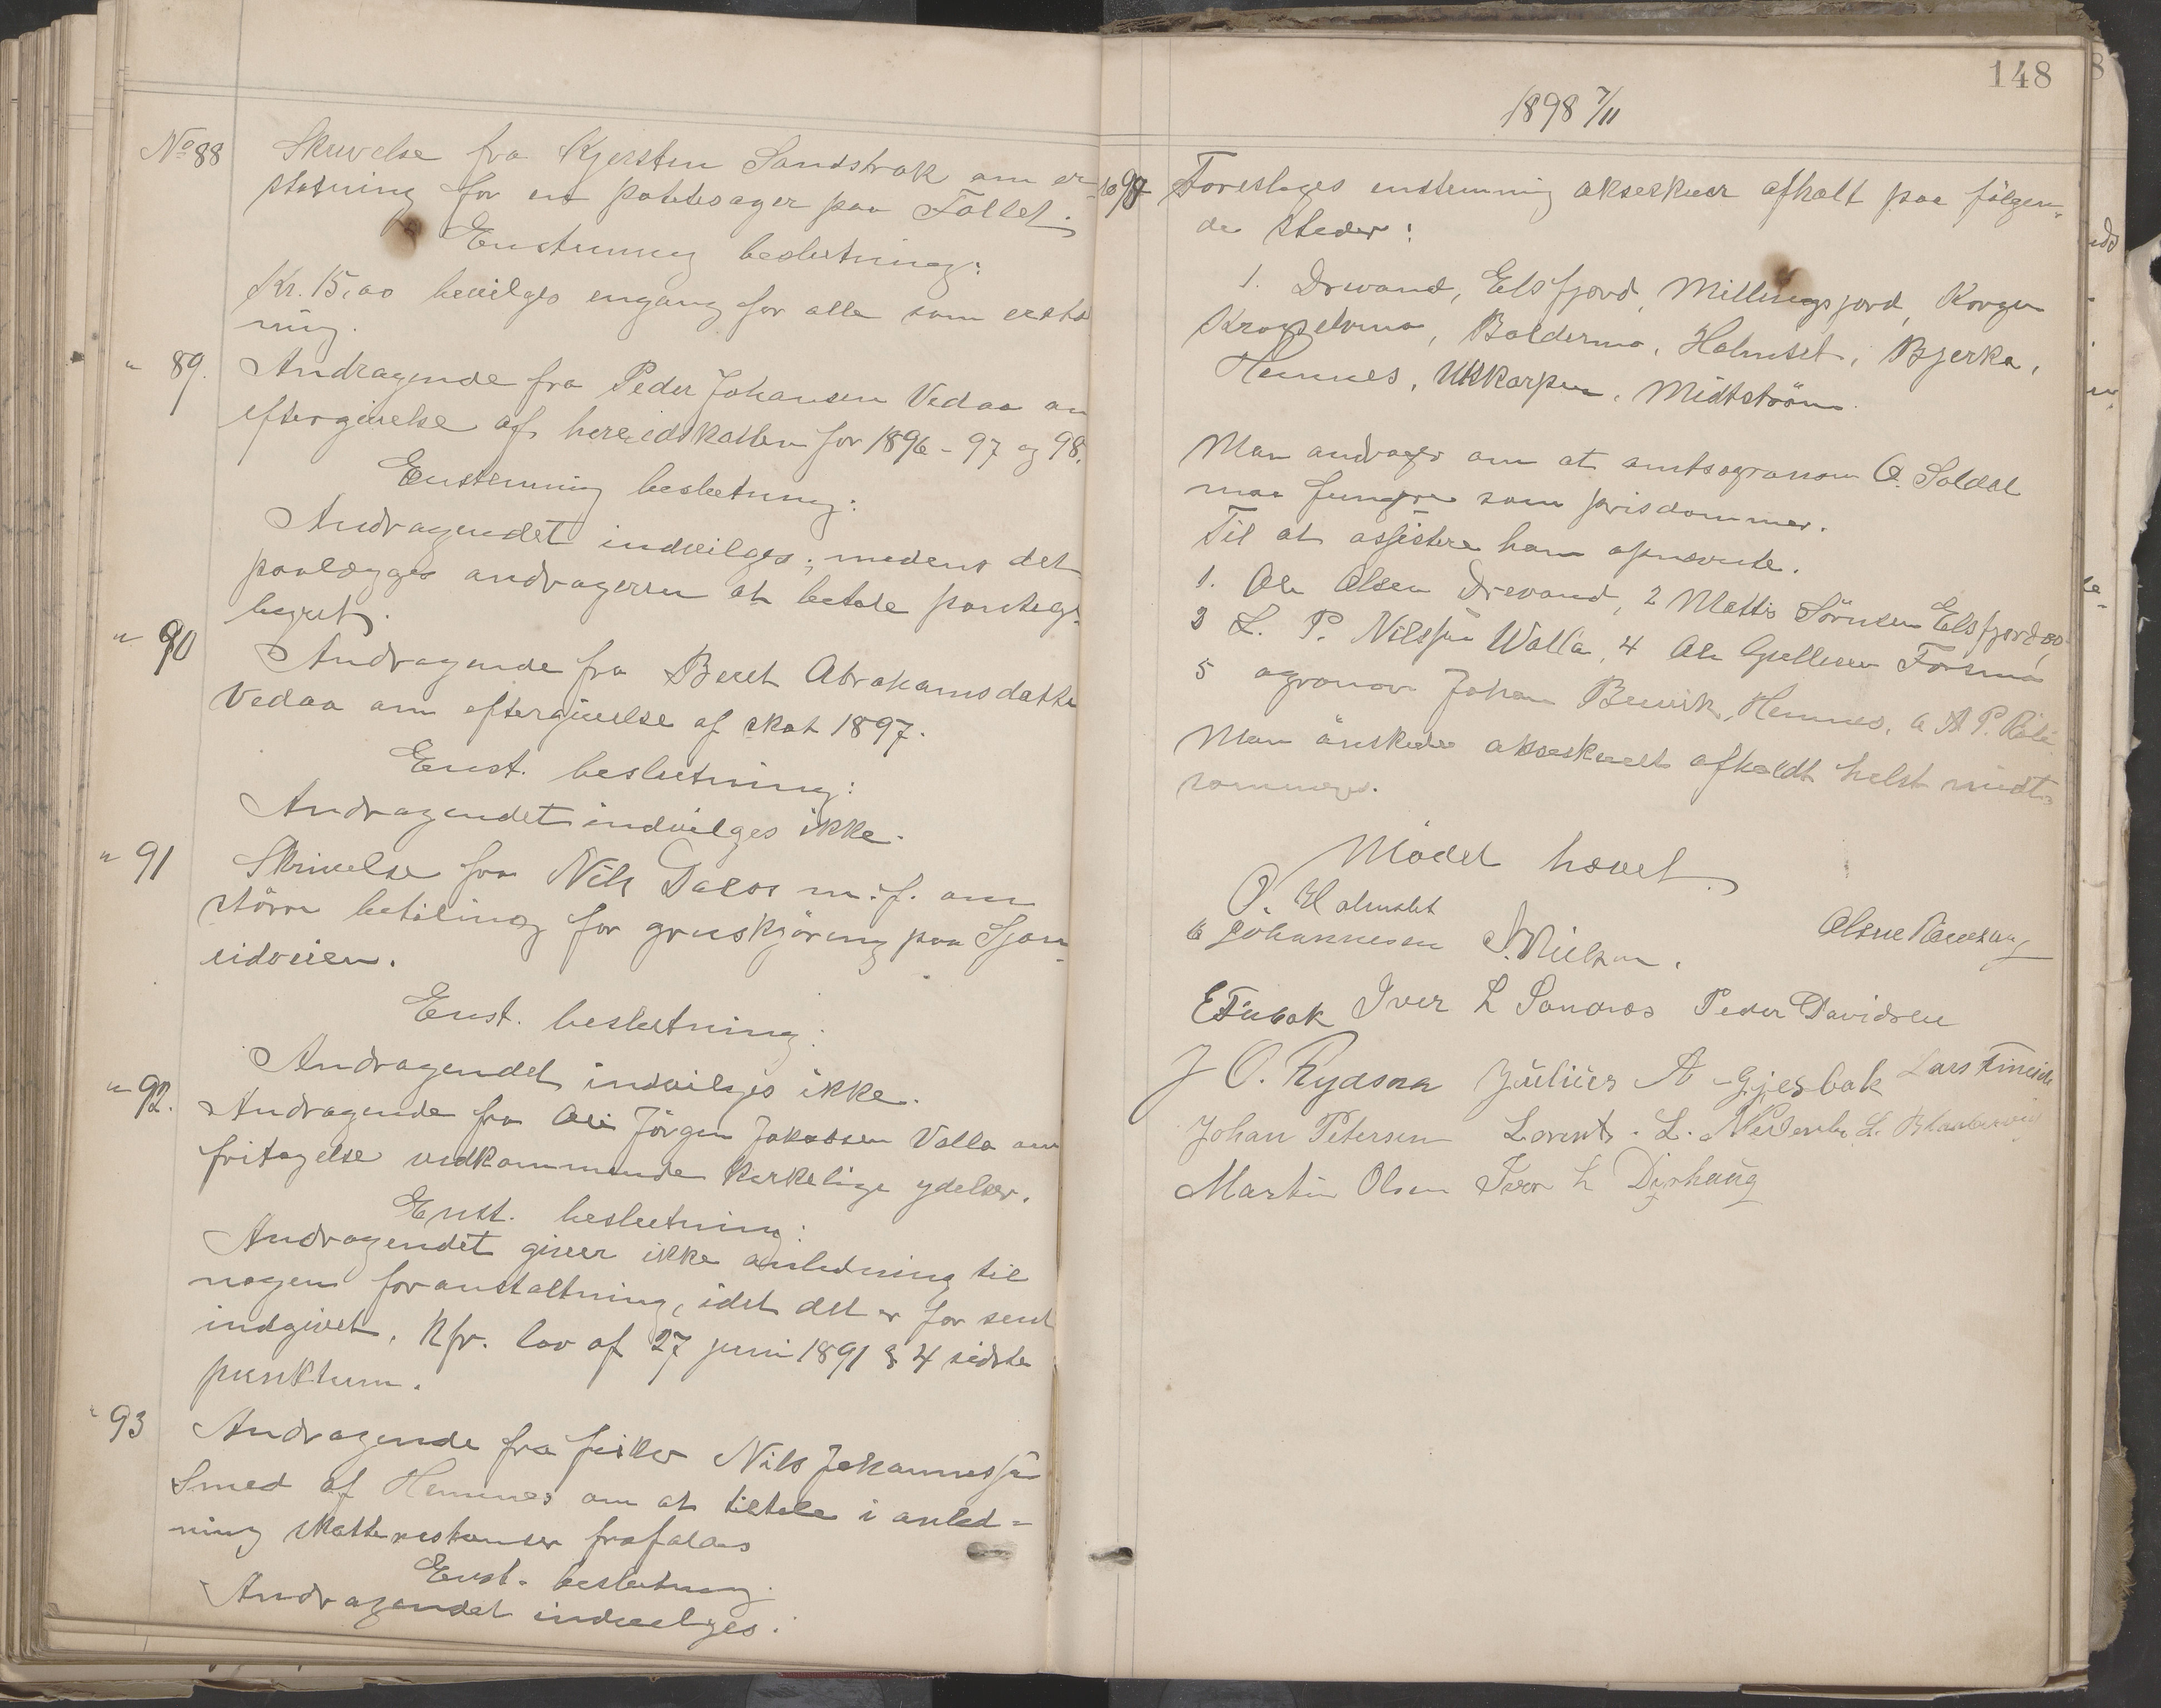 No 88 Skrivelse fra Kjersten Sandstrak om er-
statning for en potetesager paa Fallet.
Enstemmig beslutning:
Kr. 15,00 bevilges engang for alle som erstat
ning.
" 89. Andragende fra Peder Johansen Vedaa om
eftergivelse af heredskatten for 1896 - 97 og 98.
Enstemmig beslutning:
Andragendet indvilges; medens det
paalægges andrageren at betale
" 90 Andragende fra Beret Abrahamsdatter
Vedaa om eftergivelse af skat 1897.
Enst. beslutning:
Andragendet indvilges ikke.
" 91 Skrivelse fra Nils Dalos m. fl. om
större betaling for gruskjöring paa Sjon-
eidveien.
Enst. beslutning:
Andragendet indvilges ikke.
" 92. Andragende fra Ole Jörgen Jakobsen Valla om
fritagelse vedkommende kirkelige ydelser.
Enst. beslutning:
Andragendet giver ikke anledning til
nogen foranstaltning, idet det er for sent
indgivet. Kfr. lov af 27 juni 1891 § 4 sidste
punktum.
" 93 Andragende fra fisker Nils Johannessen
Smed af Hemnes om at tiltale i anled-
ning skatterestanser frafaldes
Enst. beslutning.
Andragendet indvilges.
148
1898 7/11
Foreslages enstemmig økseskuer afholt paa fölgen-
de steder:
1. Drevand, Elsfjord, Millingsjord, Korgen
Krogselvmo, Baldermo, Holmset, Bjerka,
Hemnes, Utskarpen, Midtström.
Man andrager om at amtsagronom O. Soldal
maa fungere som prisdommer.
Til at assistere ham opnævnte.
1. Ole Olsen Drevand, 2 Mattis Sörensen Elsfjordos
3 L. P. Nilssen Walla, 4 Ole Forsmo
5 agronom Johan Hemnes, 6 A. P.
Man önskede økseskuet afholdt helst midt-
sommers.
Mödet hævet.
O. Holmslet
Johannesen S. Nielsen. Olsen
Iver L Sandnes Peder Davidsen
J O. Rydsaa Julius A Gjesbak Lars
Johan Petersen Lorents. L.
Martin Olsen Iver L Dyrhaug